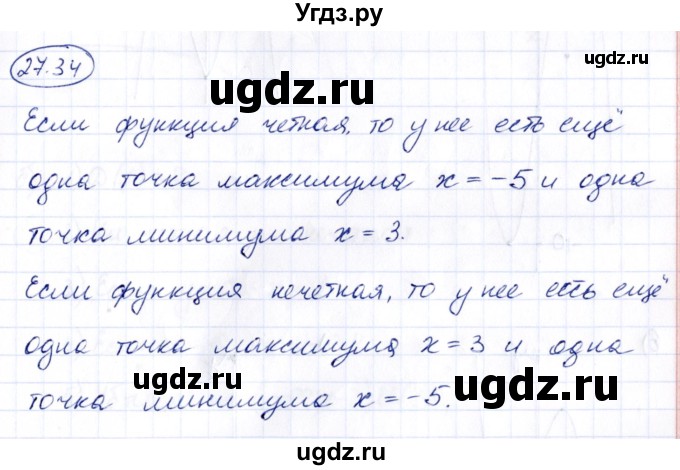 Угдз.ру
27.34
ugdz.ru ugdz.ru
Если функция четная, то у нее есть ещё
одна точка максимума x = -5 и одна
ugdz.ru ugdz.ru
точка минимума x = 3.
ugdz.ru
Если функция нечетная, то у нее есть ещё
одна точка максимума x = 3 и одна
ugdz.ru ugdz.ru
точка минимума x = -5.
ugdz.ru